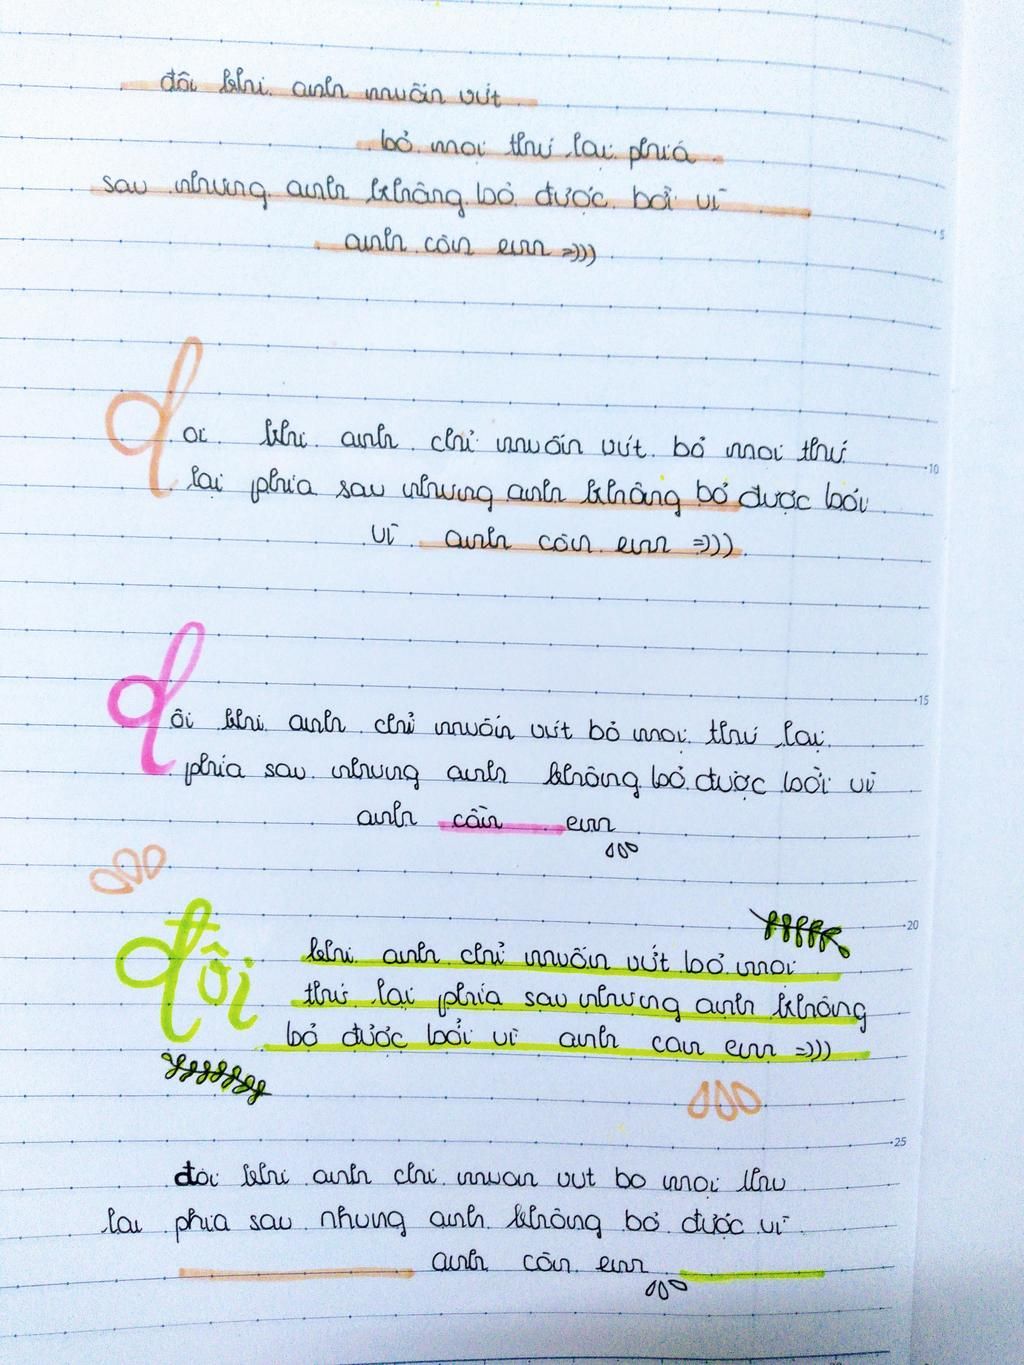 đôi khi anh muốn vứt
bỏ mọi thứ lại phiá
sau nhưng anh không bỏ được bởi vì
anh cần em =)))
5
d oi khi anh chỉ muốn vứt bỏ mọi thứ
10
lại phia sau nhưng anh không bỏ được bởi
vì anh cần em =)))
15
dôi khi anh chỉ muốn vứt bỏ mọi thứ lại
phía sau nhưng anh không bỏ được bởi vì
anh cần em
20
đôi khi anh chỉ muốn vứt bỏ mọi
thứ lại phía sau nhưng anh không
bỏ được bởi vì anh cần em =)))
25
đôi khi anh chi muon vut bo mọi thu
lai phia sau nhung anh không bỏ được vì
anh cần em